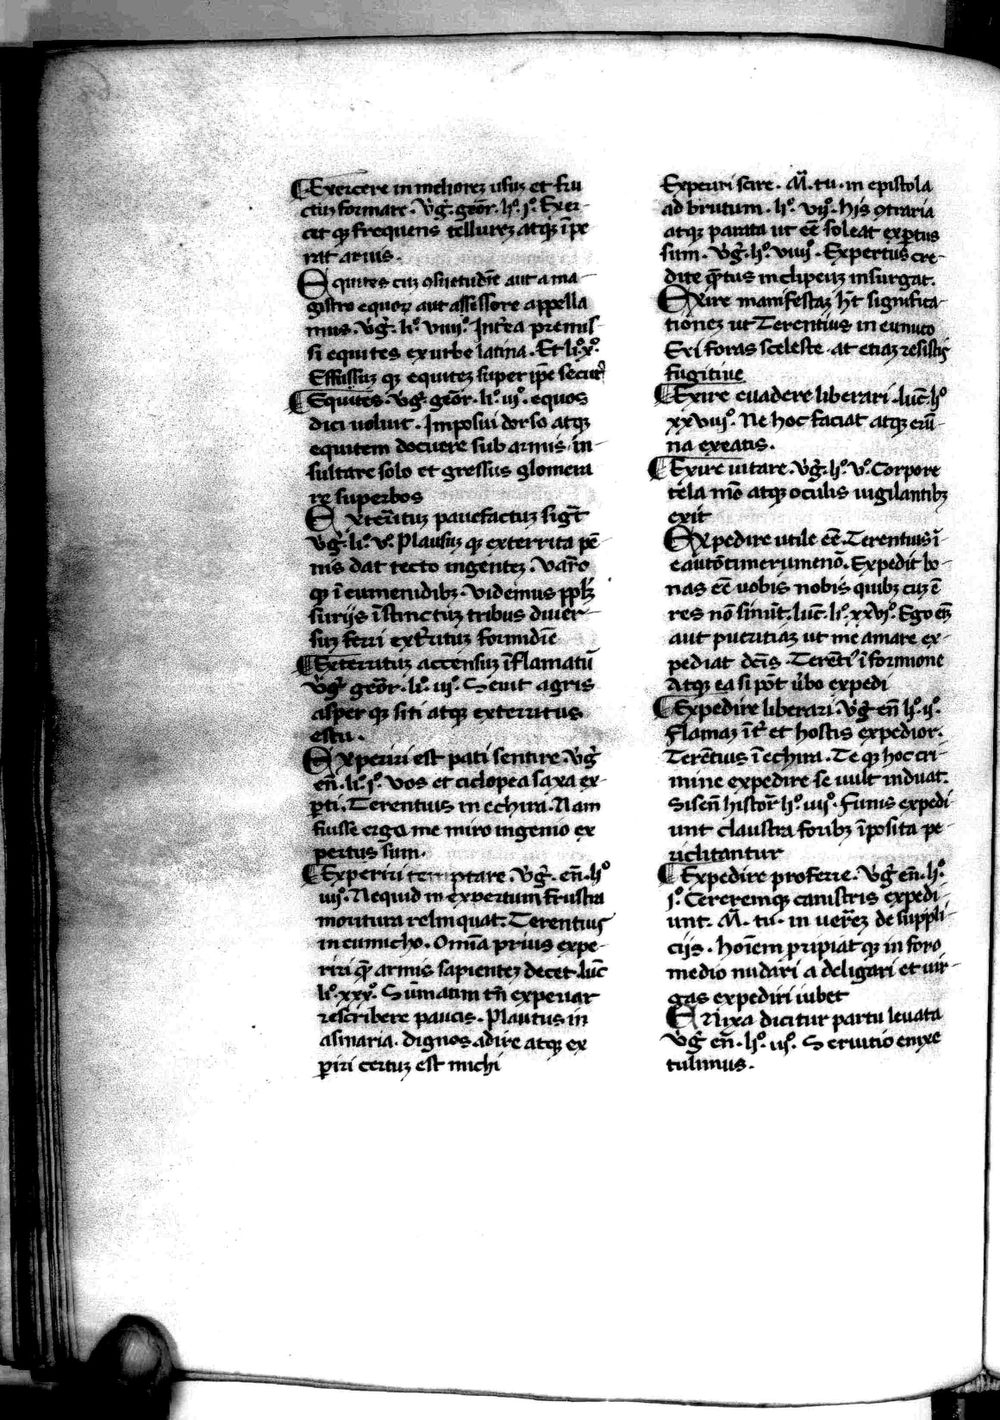 ¶Exercere in melioreʒ usuʒ et fru
ctuʒ formare · v̄g̃ · geōr · lıº · jº · Exer-
cet qʒ frequens tellureʒ atqʒ īpe
rat aruis ·
Equites cuʒ ꝯsuetudīe aut a ma-
gistro equoꝝ aut assessore appella
mus · v̄g̃ · lıº · viiiiº · Int̃ea premis-
si equites ex urbe latina · Et lıº · xº ·
Effusuʒ qʒ equiteʒ super ip̄e secut᷒
¶Equites · v̄g̃ · geōr · lıº · iijº · equos
dici uoluit · Imposui dorso atqʒ
equitem docuere sub armis · in-
sultare solo et gressus glomera
re superbos
Ext̃erituʒ pauefactuʒ sigt̃
v̄g̃ · lıº · vº · Plausuʒ qʒ exterrita pē-
nis dat tecto ingenteʒ · Varo
qʒ ī eumenidibʒ · Videmus ppl̃ʒ
furijs īstinctuʒ tribus diuer-
suʒ ferri ext̃rituʒ formidīe
¶Exterrituʒ accensuʒ īflamatū
v̄g̃ geōr · lıº · iijº · Seuit agris
asper qʒ siti atqʒ exterritus
estu ·
Experiri est pati sentire · v̄g̃
en̄ · lıº · jº · vos et ciclopea saxa ex-
ꝑti · Terentius in echira · Nam
fuisse erga me miro ingenio ex
pertus sum ·
¶Experiri temptare · v̄g̃ · en̄ · lıº
iiijº · Nequid inexpertum frustra
moritura relinquat · Terentius
in eunucho · Om̄ia prius expe-
riri q̄ȝ armis sapienteʒ decet · luc̄
lıº · xxxº · Sūmatim tn̄ experiar
rescribere paucis · Plautus in
asinaria · dignos adire atqʒ ex
ꝑiri certuʒ est michi
Experiri scire · M̃ · tu · in epistola
ad brutum · lıº · vijº · his ꝯtraria
atqʒ parata ut eē soleat exꝑtus
sum · v̄g̃ · lıº · viiiiº · Expertus cre-
dite q̄ntus in clipeuʒ insurgat ·
Exire manifestaʒ hʒt significa-
tioneʒ ut Terentius in eunuco
Exi foras sceleste · at etiaʒ resistis
fugitiue
¶Exire euadere liberari · luc̄ · lıº
xxviijº · Ne hoc faciat atqʒ erū-
na exeatis ·
¶Exire uitare · v̄g̃ · lıº · vº · Corpore
tela mō atqʒ oculis uigilantibʒ
exit
Expedire utile eē · Terentius ī
eautōtimerumenō · Expedit bo-
nas eē uobis nobis quibʒ cuʒ ē
res nō sinūt · luc̄ · lıº · xxvjº · Ego eʒ
aut pueritiaʒ ut me amare ex-
pediat dc̄is · Terēti᷒ ī formione
Atqʒ ea si pōt ūbo expedi
¶Expedire liberari · v̄g̃ en̄ lıº · ijº ·
Flamaʒ īt̃ et hostis expedior ·
Terētius ī echira · Te qʒ hoc cri-
mine expedire se uult induat ·
Sisen̄ histor̃ lıº · iiijº · Funis expedi
unt claustra foribʒ īposita pe-
riclitantur
¶Expedire proferre · v̄g̃ en̄ · lıº ·
jº · Cereremqʒ canistris expedi
unt · M̃ · tu · in uerreʒ de suppli-
cijs · hoīem pripiat qʒ in foro
medio nudari a deligari et uir-
gas expediri iubet
Enixa dicitur partu leuata
v̄g̃ en̄ · lıº · iijº · Seruitio enixe
tulimus ·